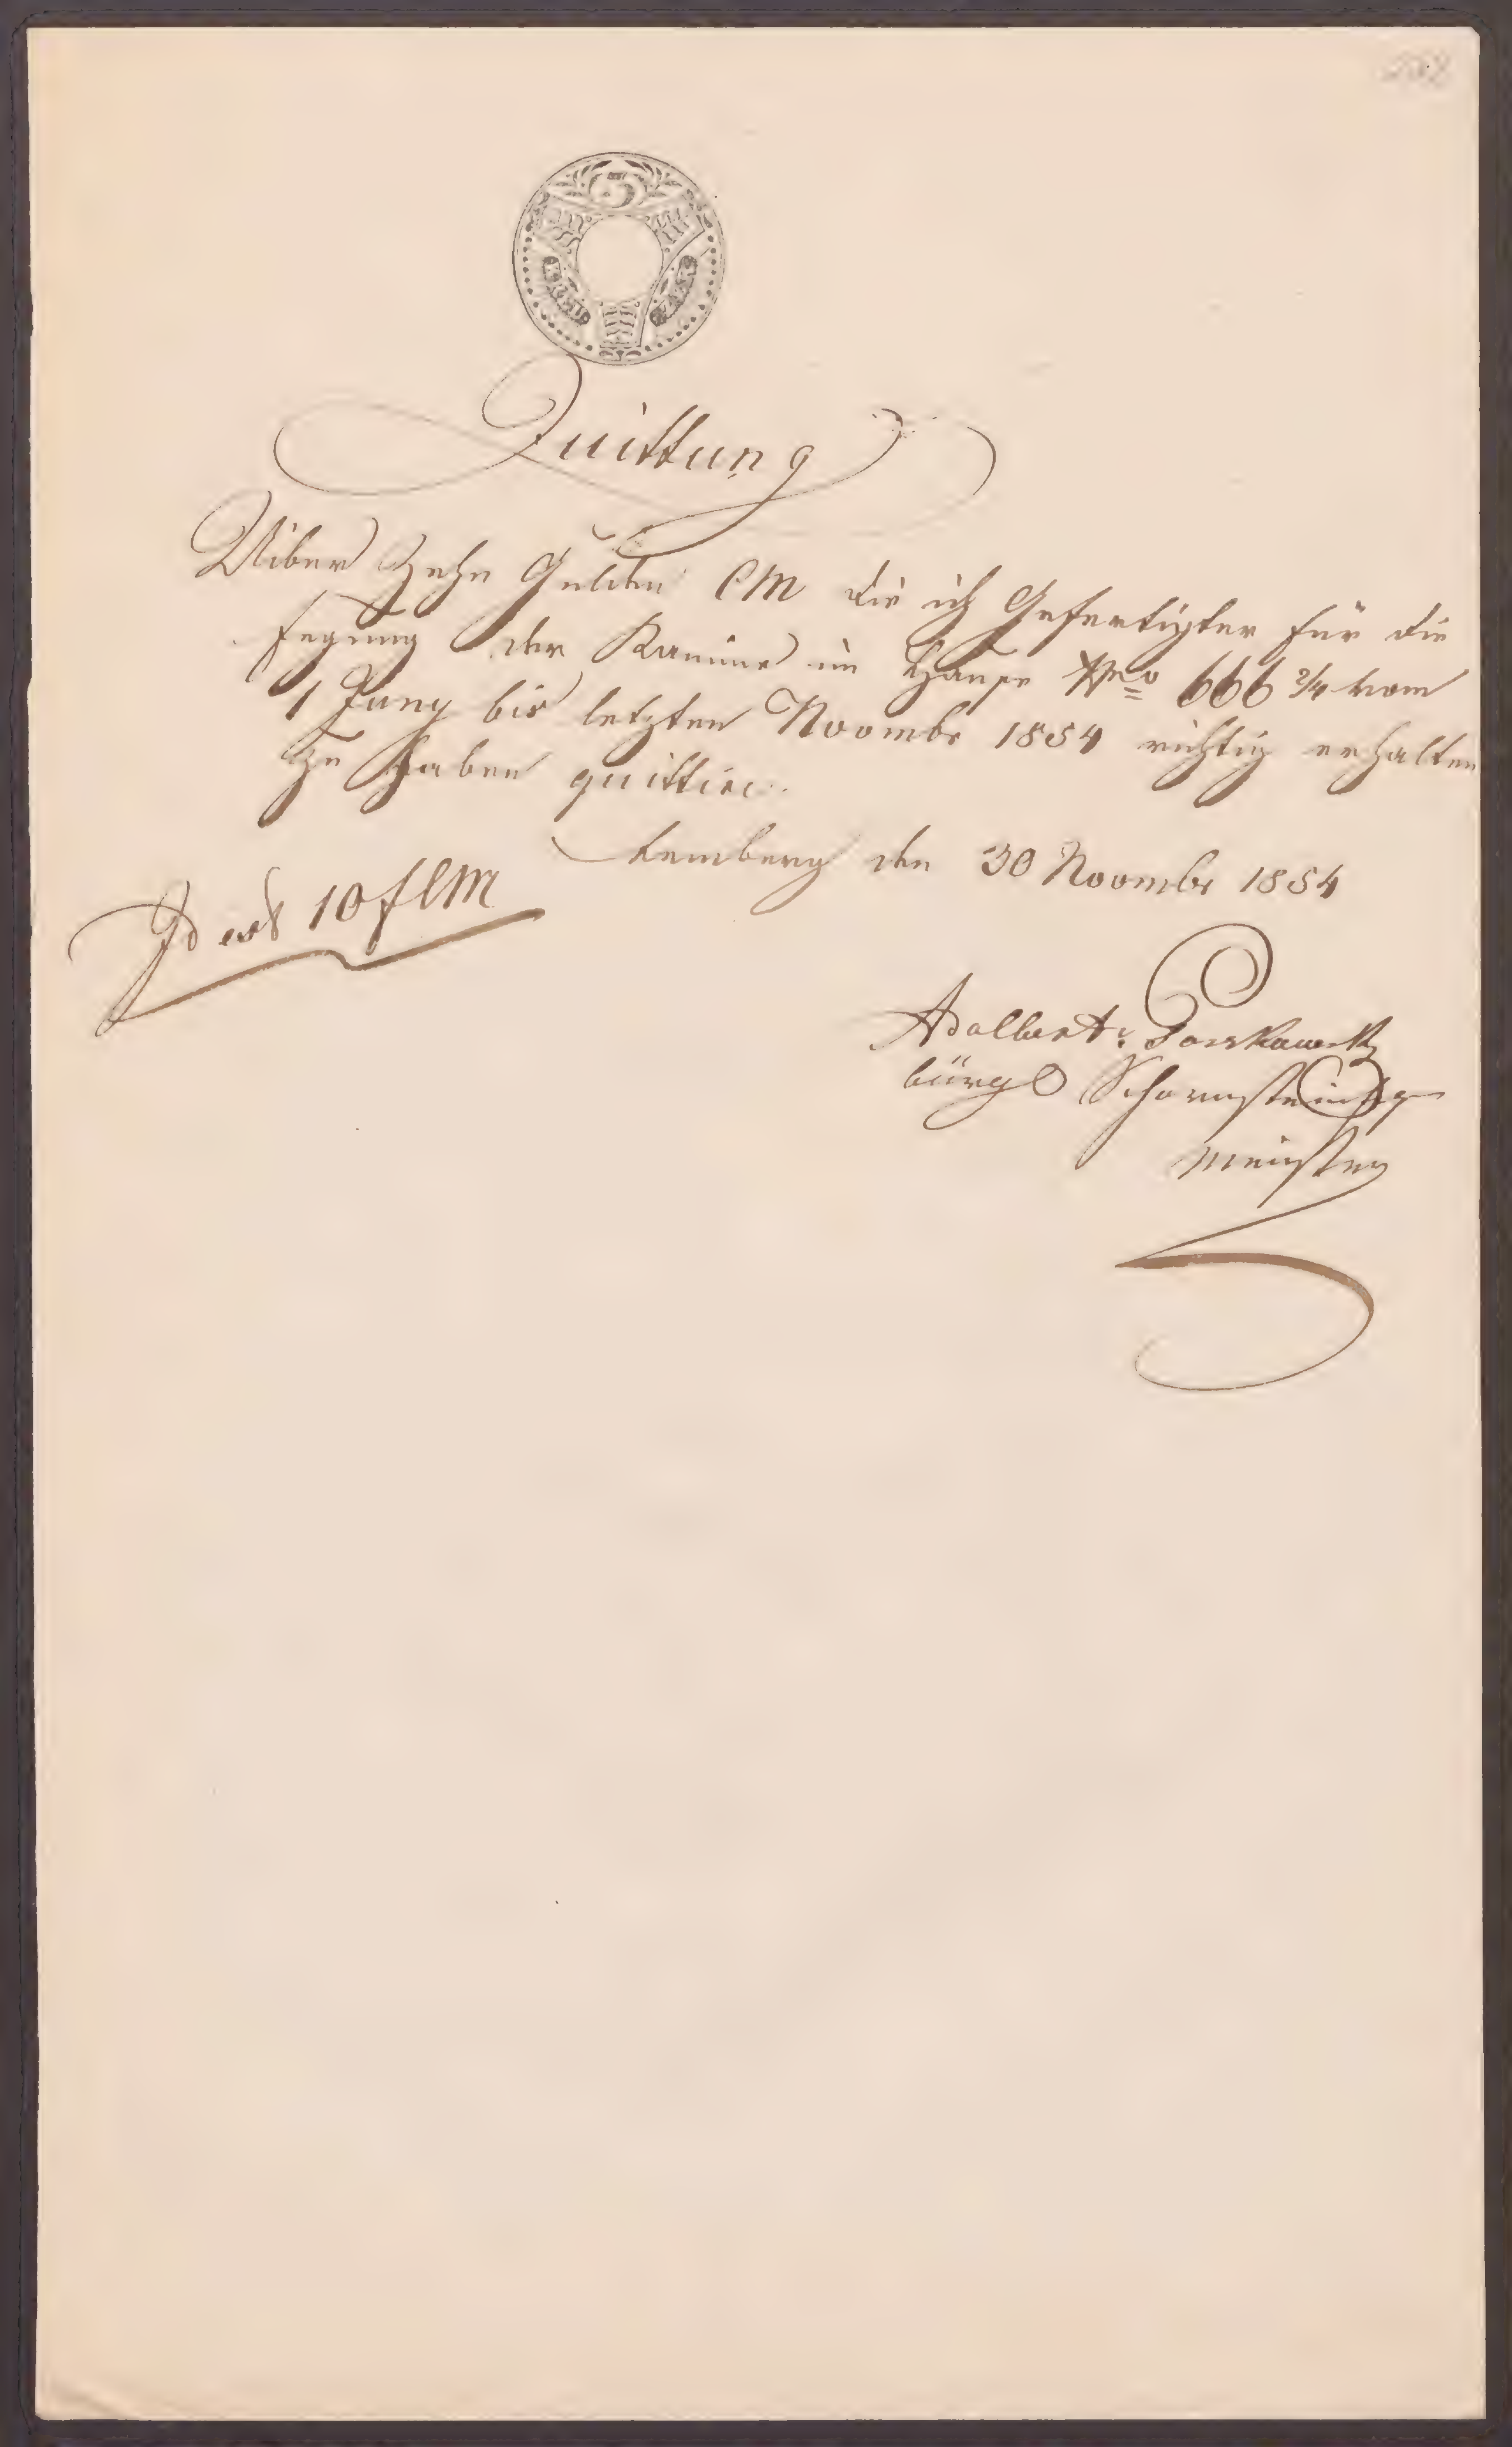 3
KREU
ZER
Quittung
Uiber Zehn Gulden CM die ich Gefertigter für die
fegung der Kamine im Hause Nro 666 2/4 vom
1 Juny bis letzten Novembr 1854 richtig erhalten
zu haben quittire.
Lemberg den 30 Novembr 1854
Id est 10 f CM
Adalbert
bürgl Schornsteinfg
meister